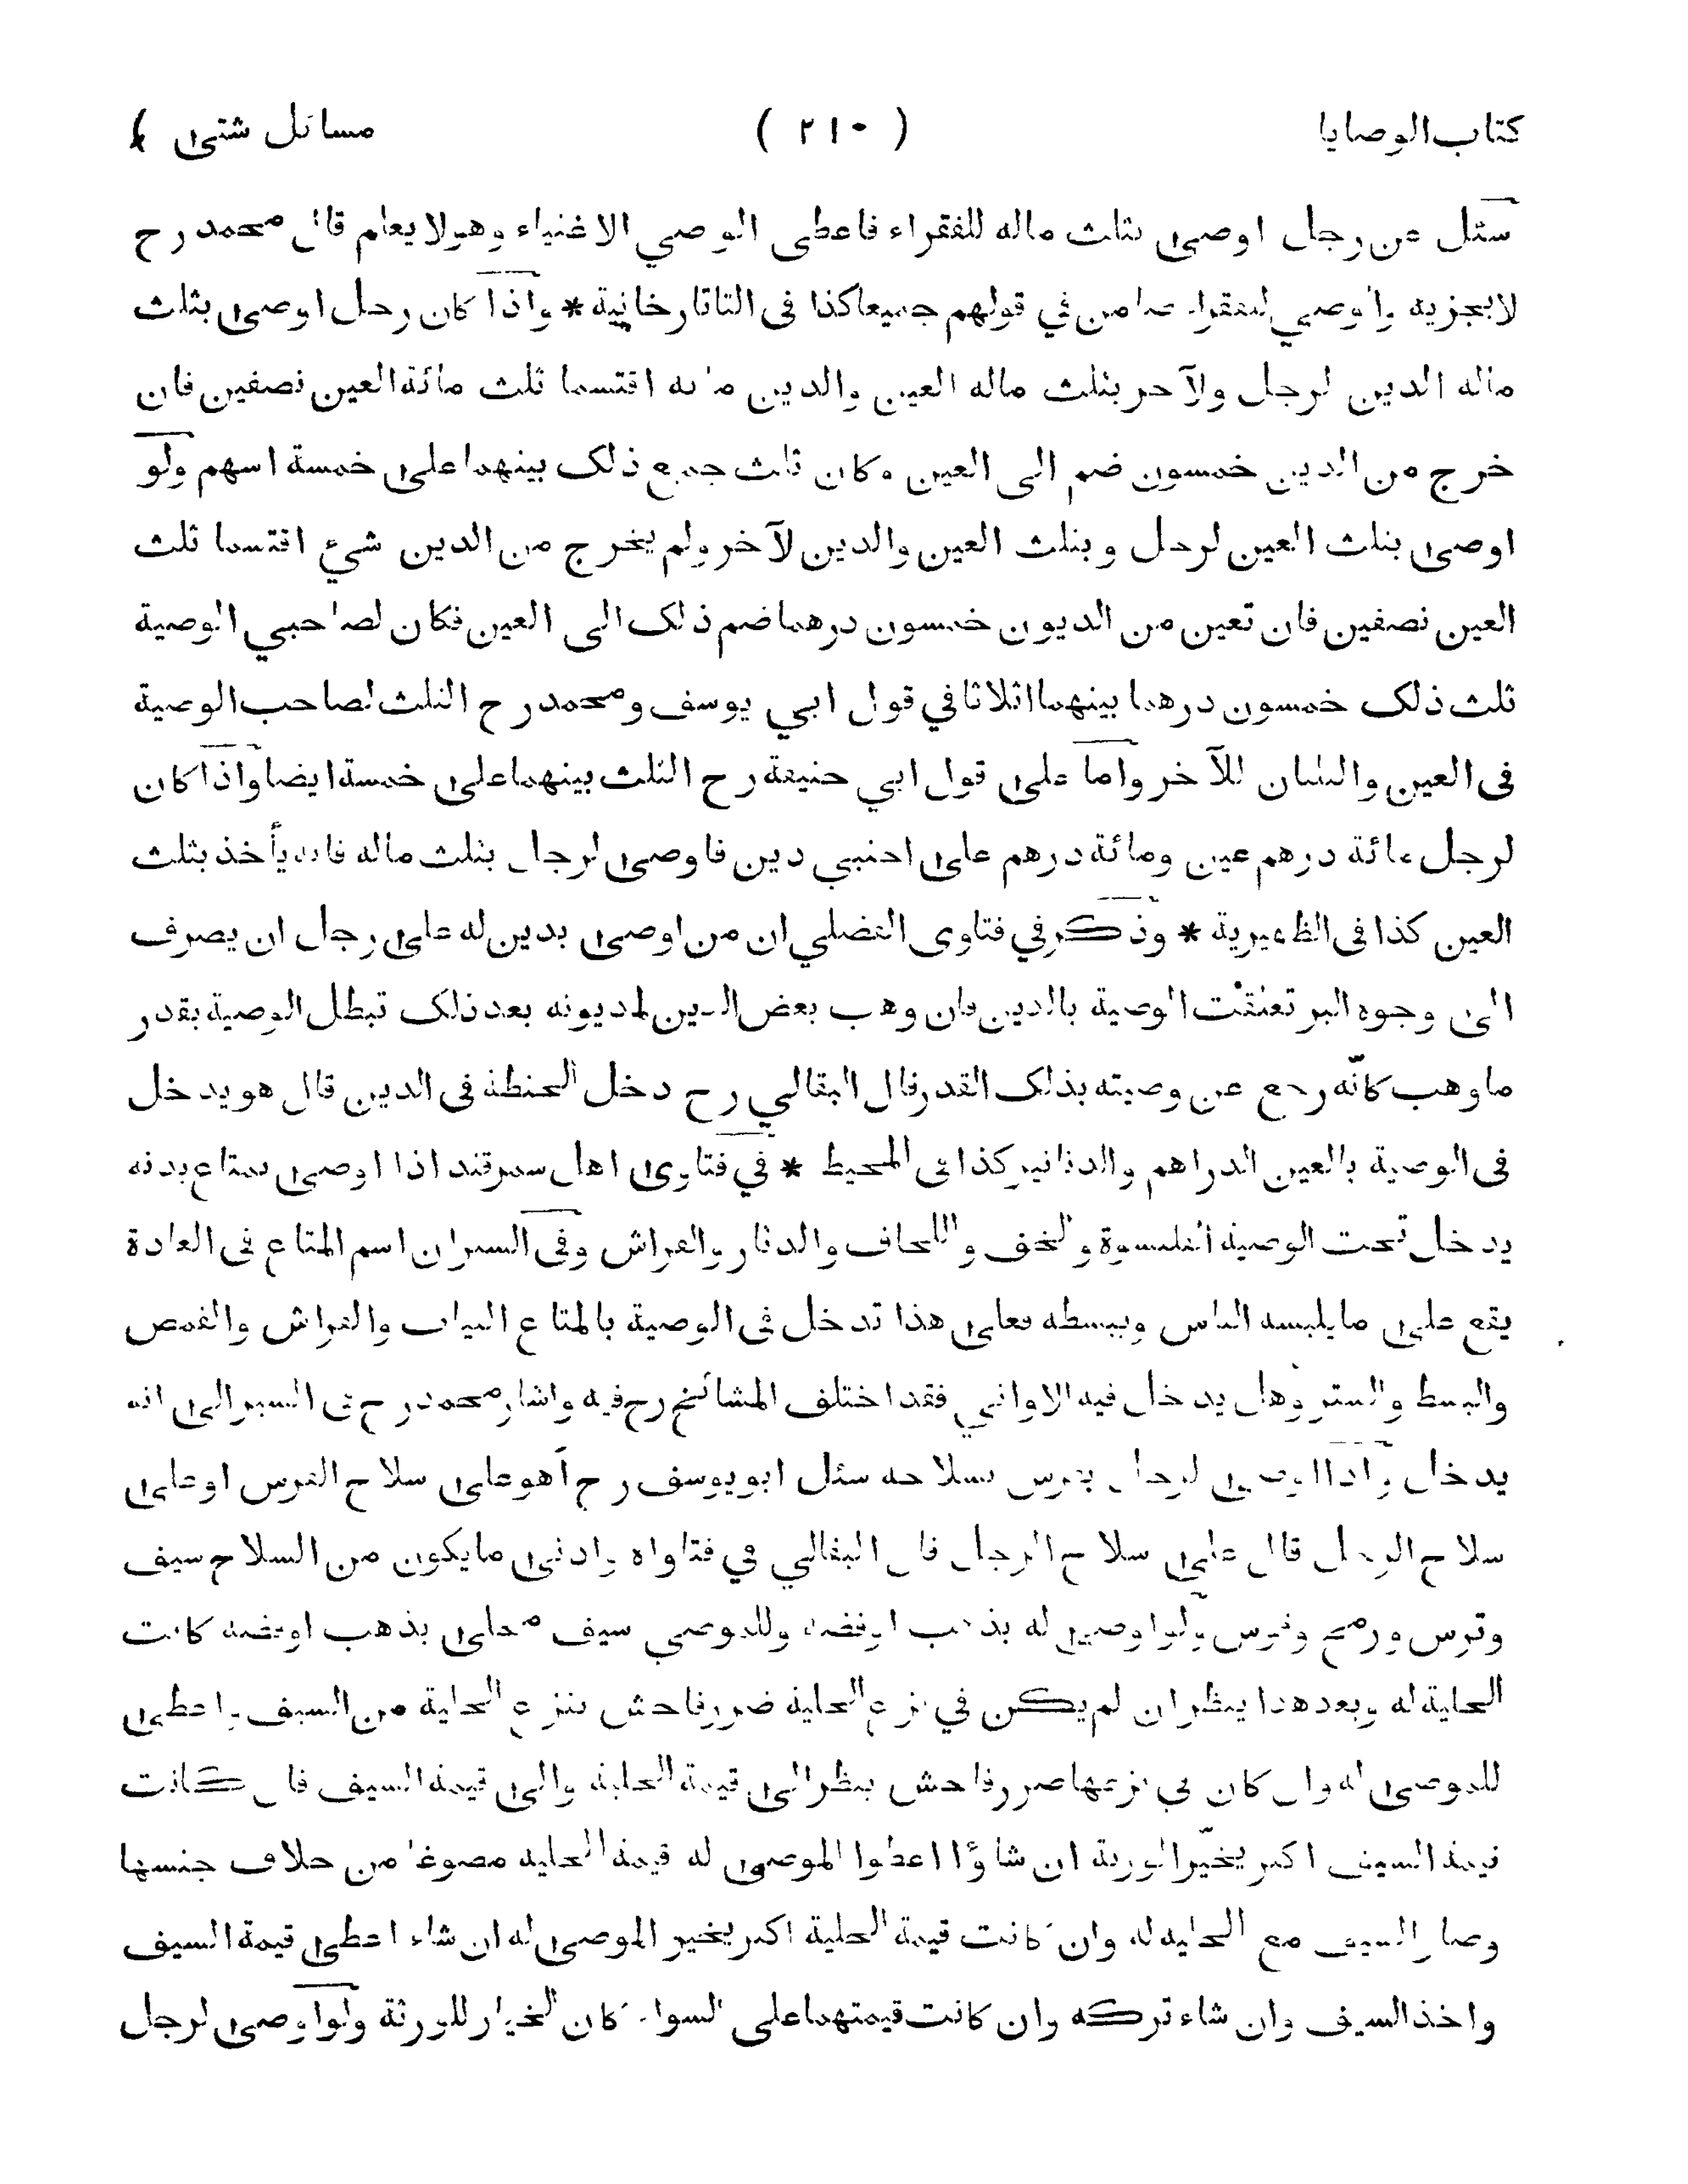 كتاب الوصايا ( ٢١٠ ) مسائل شتى
سئل عن رجل اوصى بثلث ماله للفقراء فاعطى الوصي الاغنياء وهو لا يعلم قال محمد رح
لا يجزيه والوصي للفقراء ضامن في قولهم جميعا كذا فى التاتارخانية * واذا كان رجل اوصى بثلث
ماله الدين لرجل ولآخر بثلث ماله العين والدين مائة اقتسما ثلث مائة العين نصفين فان
خرج من الدين خمسون ضم الى العين وكان ثلث جميع ذلك بينهما على خمسة اسهم ولو
اوصى بثلث العين لرجل وبثلث العين والدين لآخر ولم يخرج من الدين شيء اقتسما ثلث
العين نصفين فان تعين من الديون خمسون درهما ضم ذلك الى العين فكان لصاحبي الوصية
ثلث ذلك خمسون درهما بينهما اثلاثا في قول ابي يوسف ومحمد رح الثلث لصاحب الوصية
فى العين والثلثان للآخر واما على قول ابي حنيفة رح الثلث بينهما على خمسة ايضا واذا كان
لرجل مائة درهم عين ومائة درهم على اجنبي دين فاوصى لرجل بثلث ماله فانه يأخذ بثلث
العين كذا فى الظهيرية * وذكر في فتاوى الفضلي ان من اوصى بدين له على رجل ان يصرف
الى وجوه البر تعلقت الوصية بالدين فان وهب بعض الدين لمديونه بعد ذلك تبطل الوصية بقدر
ما وهب كانّه رجع عن وصيته بذلك القدر قال البقالي رح دخل الحنطة فى الدين قال هو يدخل
فى الوصية بالعين الدراهم والدنانير كذا فى المحيط * في فتاوى اهل سمرقند اذا اوصى بمتاع بدنه
يدخل تحت الوصية القلنسوة والخف واللحاف والدثار والفراش وفى السير ان اسم المتاع فى العادة
يقع على ما يلبسه الناس ويبسطه فعلى هذا تدخل فى الوصية بالمتاع الثياب والفراش والقمص
والبسط والستر وهل يدخل فيه الاواني فقد اختلف المشائخ رح فيه واشار محمد رح فى السير الى انه
يدخل واذا اوصى لرجل بفرس بسلاحه سئل ابو يوسف رح أهو على سلاح الفرس او على
سلاح الرجل قال على سلاح الرجل قال البقالي في فتاواه وادنى ما يكون من السلاح سيف
وترس ورمح وقوس ولو اوصى له بذهب او فضة وللموصي سيف محلى بذهب او فضة كانت
الحلية له وبعد هذا ينظر ان لم يكن في نزع الحلية ضرر فاحش ننزع الحلية من السيف واعطى
للموصى له وان كان في نزعها ضرر فاحش ينظر الى قيمة الحلية والى قيمة السيف فان كانت
قيمة السيف اكثر يخيّر الورثة ان شاؤا اعطوا الموصى له قيمة الحلية مصوغا من خلاف جنسها
وصار السيف مع الحلية له وان كانت قيمة الحلية اكثر يخير الموصى له ان شاء اعطى قيمة السيف
واخذ السيف وان شاء تركه وان كانت قيمتهما على السواء كان الخيار للورثة ولو اوصى لرجل